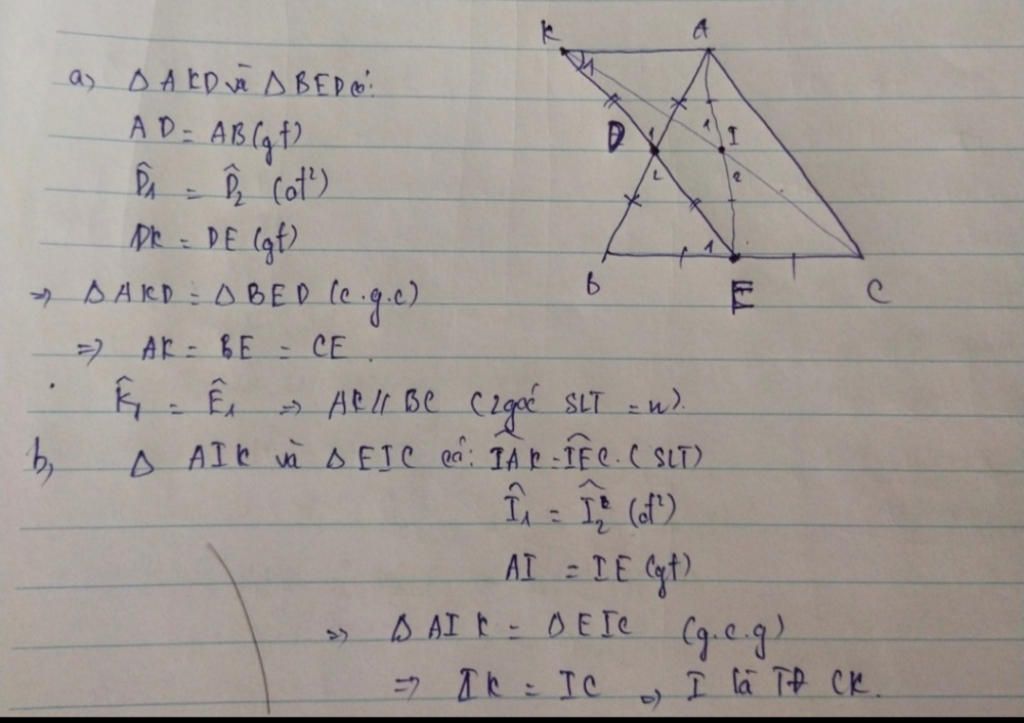 K A
a, Δ AKD và Δ BED có:
AD = AB (gt)
D̂1 = D̂2 (đ²)
DK = DE (gt)
⇒ Δ AKD = Δ BED (c.g.c)
⇒ AK = BE = CE.
K̂1 = Ê1 ⇒ AK // BC (2 góc SLT = n).
b, Δ AIK và Δ EIC có: IÂK = IÊC. (SLT)
Î1 = Î2 (đ²)
AI = IE (gt)
⇒ Δ AIK = Δ EIC (g.c.g)
⇒ IK = IC ⇒ I là TĐ CK.
1
D 1 1 I
2 2
1
B E C